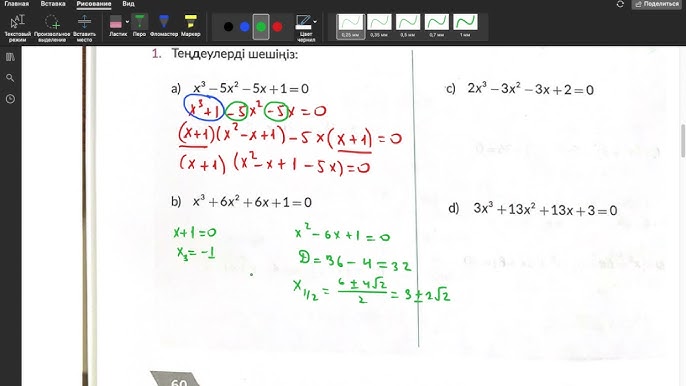 Главная Вставка Рисование Вид Поделиться
Текстовый режим Произвольное выделение Вставить место Ластик Перо Фломастер Маркер Цвет чернил 0,25 мм 0,35 мм 0,5 мм 0,7 мм 1 мм
1. Теңдеулерді шешіңіз:
a) x³ – 5x² – 5x + 1 = 0
c) 2x³ – 3x² – 3x + 2 = 0
x³ + 1 – 5x² – 5x = 0
(x+1)(x² – x + 1) – 5x(x+1) = 0
(x+1) (x² – x + 1 – 5x) = 0
b) x³ + 6x² + 6x + 1 = 0
d) 3x³ + 13x² + 13x + 3 = 0
x + 1 = 0
x₃ = –1
x² – 6x + 1 = 0
D = 36 – 4 = 32
x₁/₂ = (6 ± 4√2)/2 = 3 ± 2√2
60